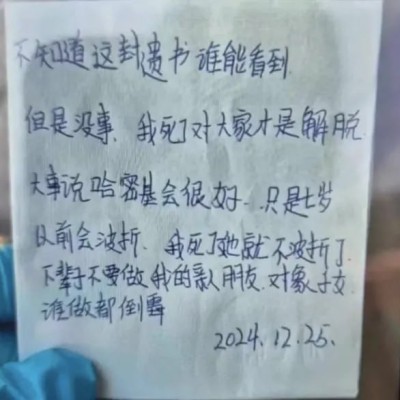 不知道这封遗书谁能看到.
但是没事、我死了对大家才是解脱.
大事说哈密基会很好、只是七岁
以前会波折、我死了她就不波折了.
下辈子不要做我的亲人朋友.对象.子女
谁做都倒霉
2024.12.25.